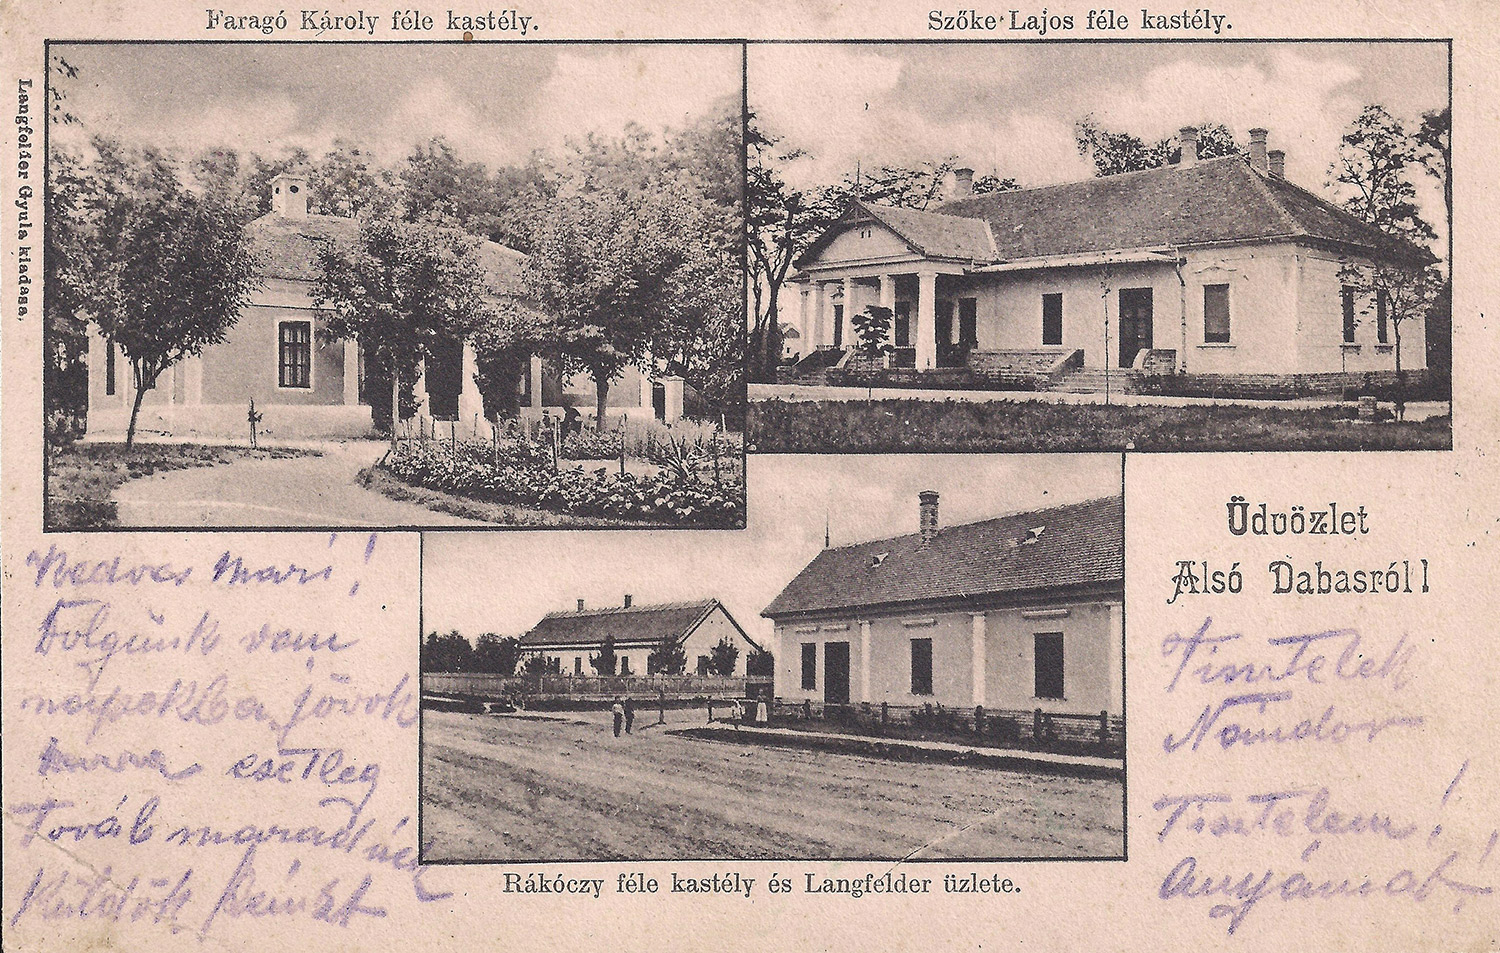 Faragó Károly féle kastély.
Szőke Lajos féle kastély.
Langfelder Gyula kiadása.
Üdvözlet
Alsó Dabasról!
Kedves Mari!
Dolgunk vem
napokba jövök
esetleg
Továb maradnék
Küldök pénzt
Tisztelek
Nándor
Tisztelem!
Anyámat!
Rákóczy féle kastély és Langfelder üzlete.